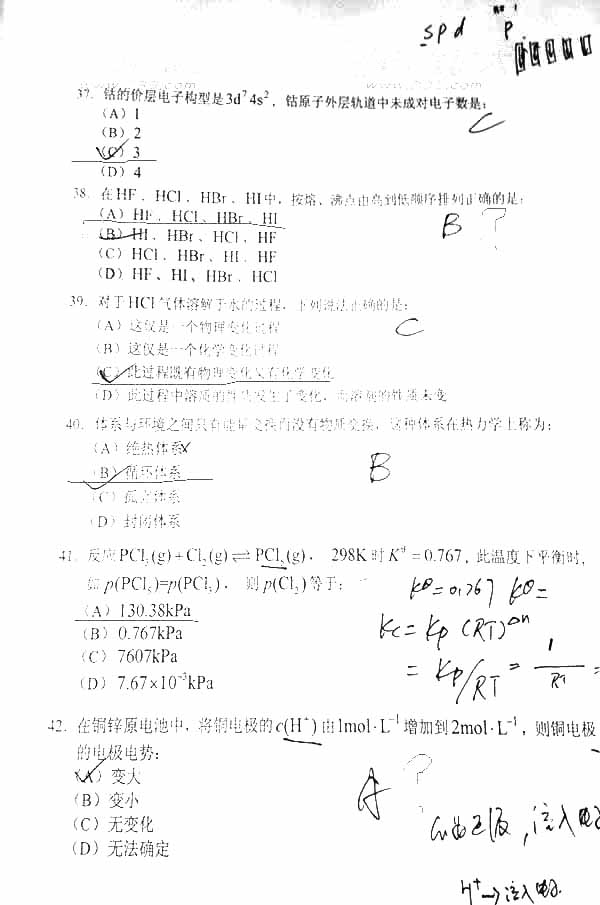 s p d p
37. 钴的价层电子构型是3d⁷4s²，钴原子外层轨道中未成对电子数是：
C
(A) 1
(B) 2
(C) 3
(D) 4
38. 在HF、HCl、HBr、HI中，按熔、沸点由高到低顺序排列正确的是：
B ?
(A) HF、HCl、HBr、HI
(B) HI、HBr、HCl、HF
(C) HCl、HBr、HI、HF
(D) HF、HI、HBr、HCl
39. 对于HCl气体溶解于水的过程，下列说法正确的是：
C
(A) 这仅是一个物理变化过程
(B) 这仅是一个化学变化过程
(C) 此过程既有物理变化又有化学变化
(D) 此过程中溶质的性质发生了变化，而溶剂的性质未变
40. 体系与环境之间只有能量交换而没有物质交换，这种体系在热力学上称为：
(A) 绝热体系
B
(B) 循环体系
(C) 孤立体系
(D) 封闭体系
41. 反应PCl₃(g)+Cl₂(g)⇌PCl₅(g)，298K时K^θ=0.767，此温度下平衡时，
如p(PCl₅)=p(PCl₃)，则p(Cl₂)等于：
Kθ=0.767 Kθ=
(A) 130.38kPa
(B) 0.767kPa
Kc=Kp (RT)^Δn
(C) 7607kPa
(D) 7.67×10⁻³kPa
= Kp/RT = 1/RT =
42. 在铜锌原电池中，将铜电极的c(H⁺)由1mol·L⁻¹增加到2mol·L⁻¹，则铜电极
的电极电势：
(A) 变大
A ?
(B) 变小
(C) 无变化
(D) 无法确定
H⁺→注入电子